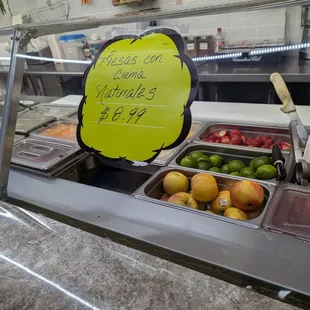 Fresas con
Crema
Naturales
$ 8.99